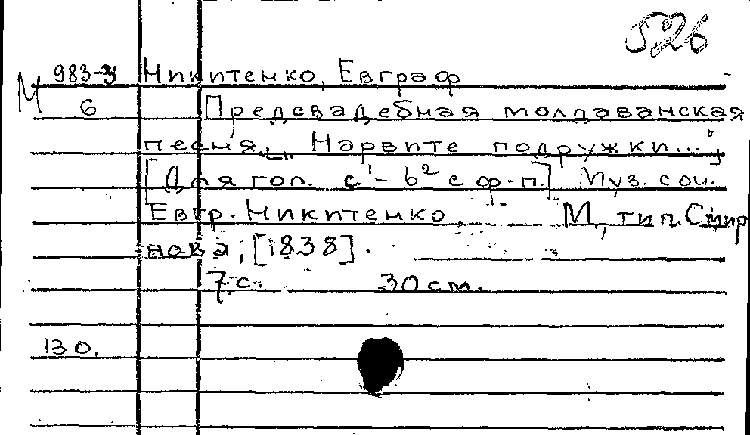 526
983-3 Никитенко, Евграф
М 6 Предсвадебная молдаванская
песня „Нарвите подружки..."
[Для гол. c¹-b² с ф-п.] Муз. соч.
Евгр. Никитенко. М., тип. Смир
нова, [1838].
7 с. 30 см.
130.